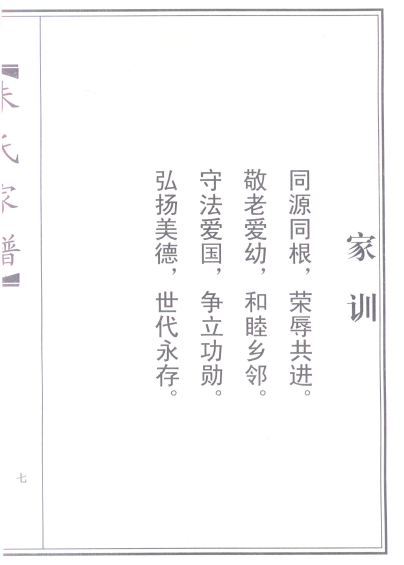 家训
同源同根，荣辱共进。
敬老爱幼，和睦乡邻。
守法爱国，争立功勋。
弘扬美德，世代永存。
朱氏家谱
七